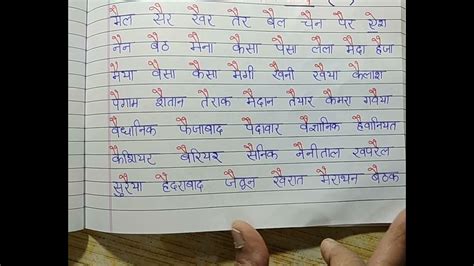 मैल सैर खैर तैर बैल चैन पैर ऐश
नैन बैठ मैना कैसा पैसा लैला मैदा हैजा
मैया वैसा कैसा मैगी खैनी खैया कैलाश
पैगाम शैतान तैराक मैदान तैयार कैमरा गवैया
वैधानिक फैजाबाद पैदावार वैज्ञानिक हैवानियत
कैशियर बैरियर सैनिक नैनीताल खपरैल
सुरैया हैदराबाद जैतून खैरात मैराथन बैठक